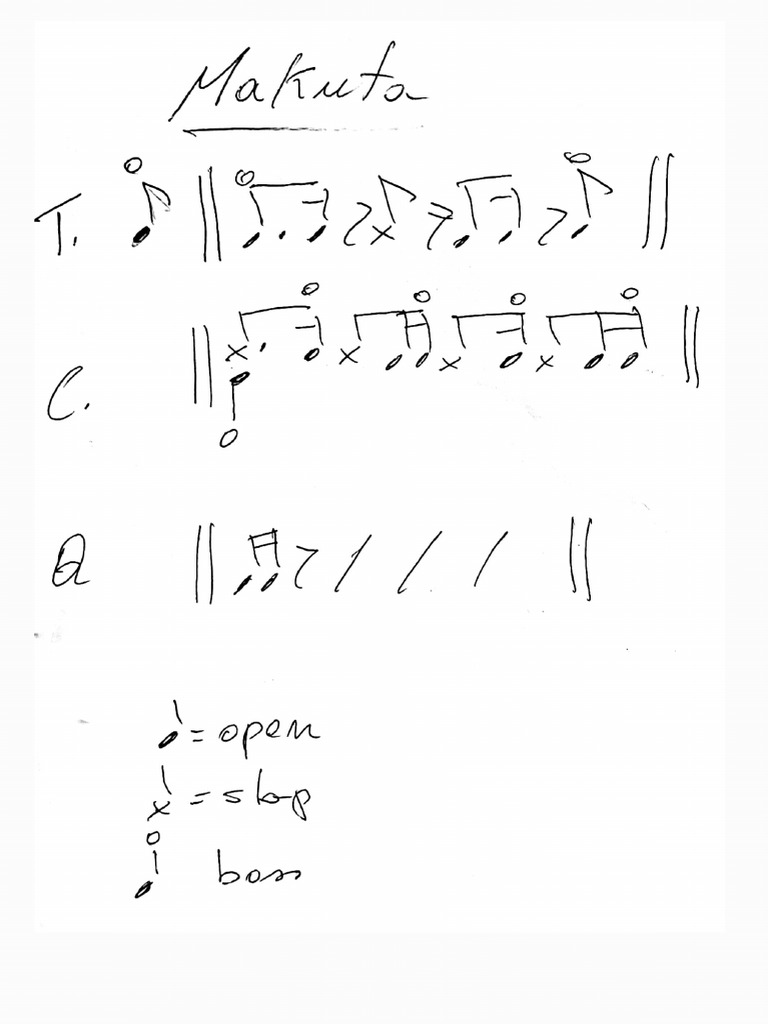 Makuta
T.
C.
Q
= open
= slap
bass